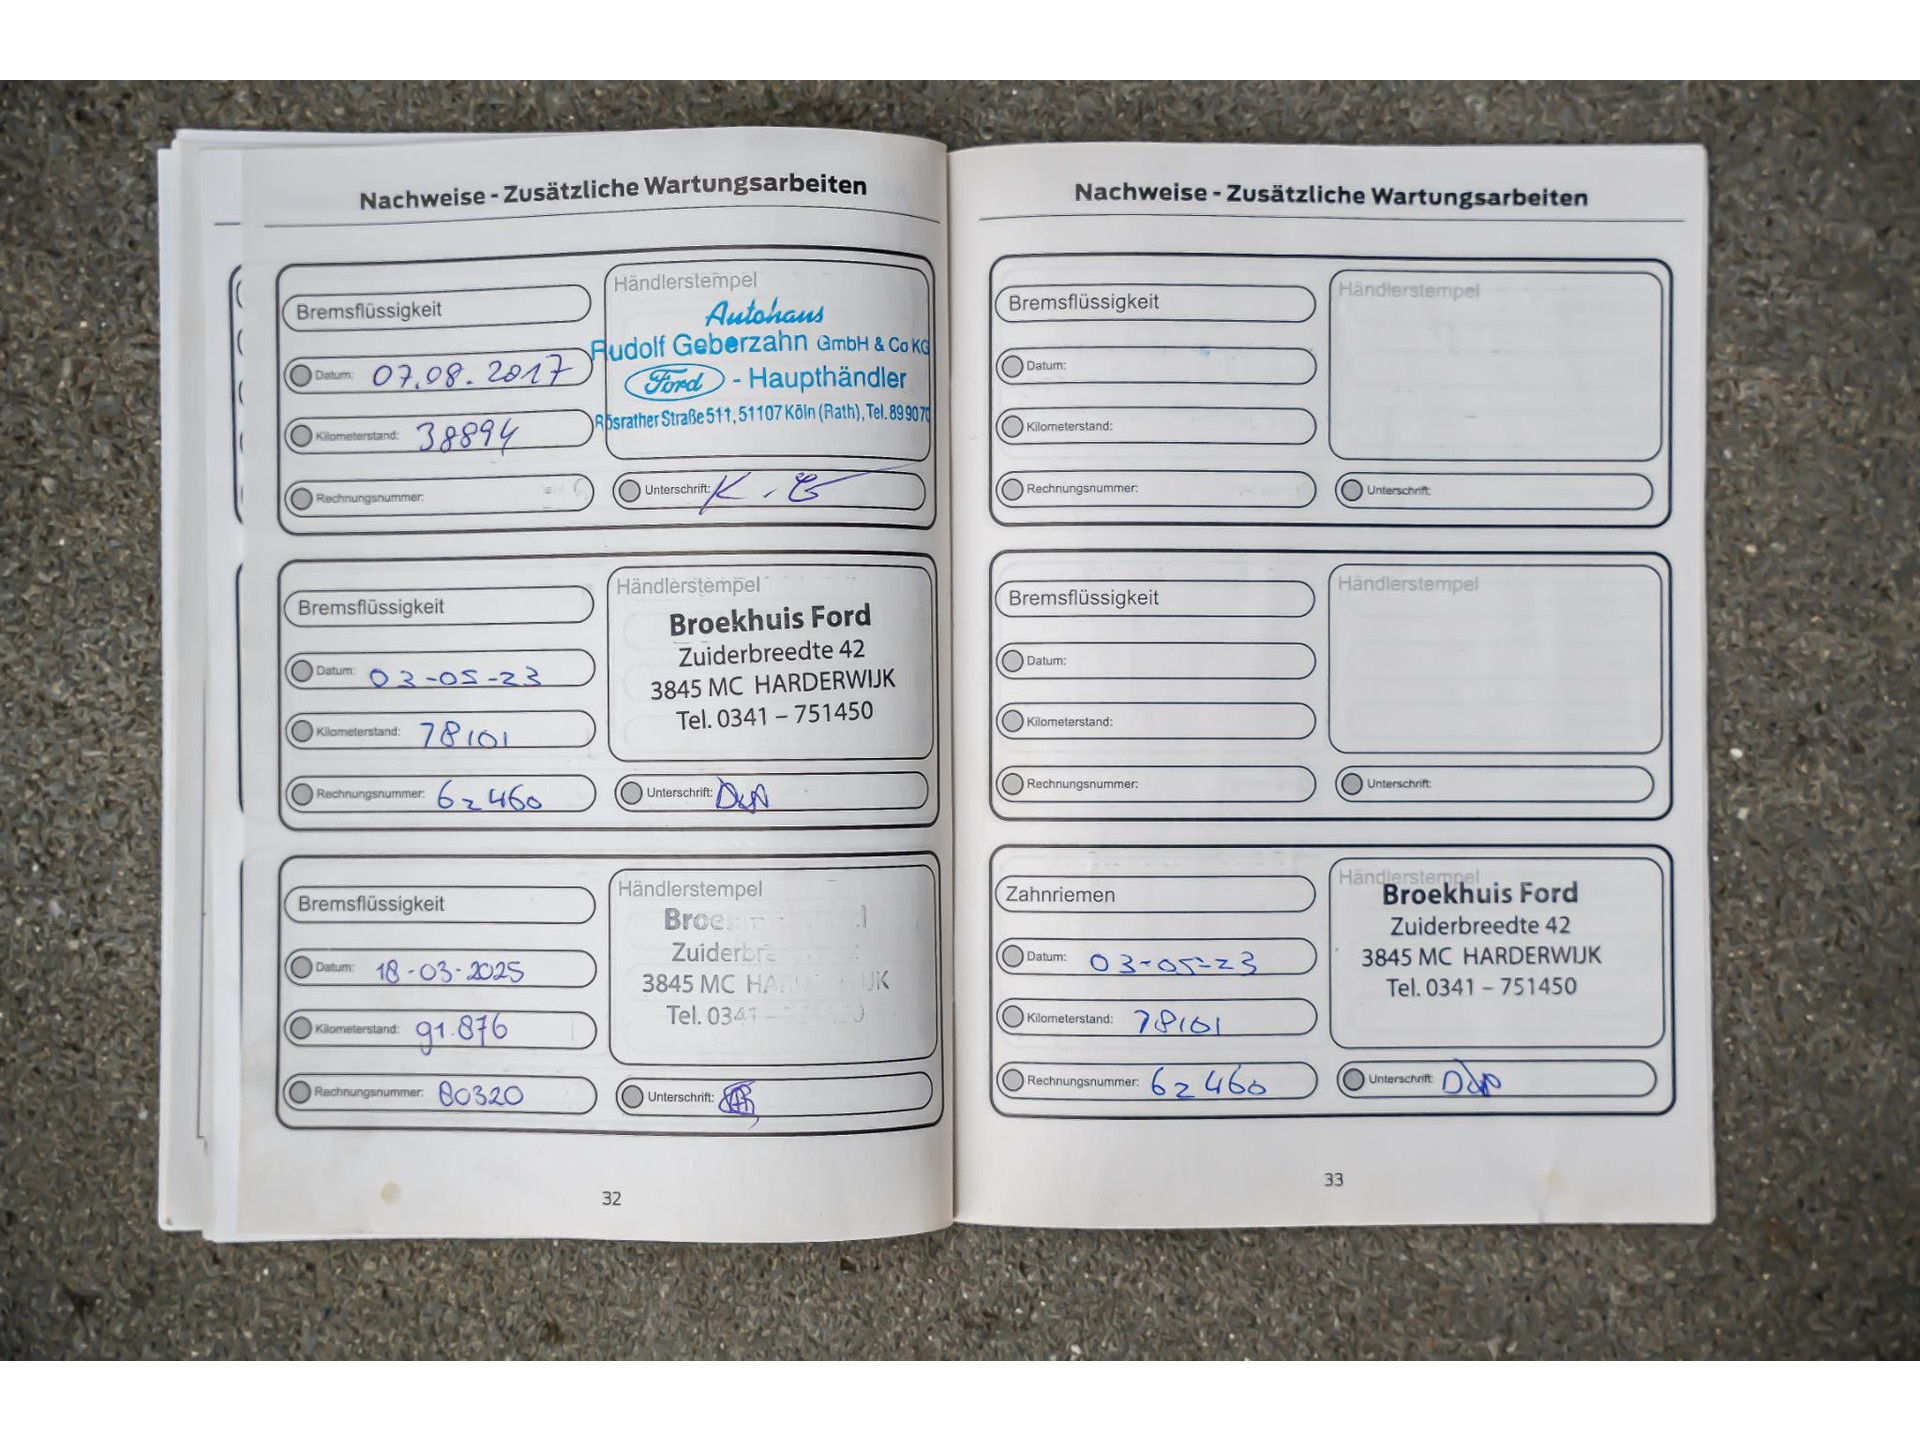 Nachweise - Zusätzliche Wartungsarbeiten
Bremsflüssigkeit
Datum: 07.08.2017
Kilometerstand: 38894
Rechnungsnummer:
Händlerstempel
Autohaus
Rudolf Geberzahn GmbH & Co KG
Ford - Haupthändler
Rösrather Straße 511, 51107 Köln (Rath), Tel. 89 90 70
Unterschrift:
Bremsflüssigkeit
Datum: 03-05-23
Kilometerstand: 78101
Rechnungsnummer: 62460
Händlerstempel
Broekhuis Ford
Zuiderbreedte 42
3845 MC HARDERWIJK
Tel. 0341 – 751450
Unterschrift:
Bremsflüssigkeit
Datum: 18-03-2025
Kilometerstand: 91.876
Rechnungsnummer: 80320
Händlerstempel
3845 MC
Tel.
Unterschrift:
32
Nachweise - Zusätzliche Wartungsarbeiten
Bremsflüssigkeit
Datum:
Kilometerstand:
Rechnungsnummer:
Händlerstempel
Unterschrift:
Bremsflüssigkeit
Datum:
Kilometerstand:
Rechnungsnummer:
Händlerstempel
Unterschrift:
Zahnriemen
Datum: 03-05-23
Kilometerstand: 78101
Rechnungsnummer: 62460
Händlerstempel
Broekhuis Ford
Zuiderbreedte 42
3845 MC HARDERWIJK
Tel. 0341 – 751450
Unterschrift:
33